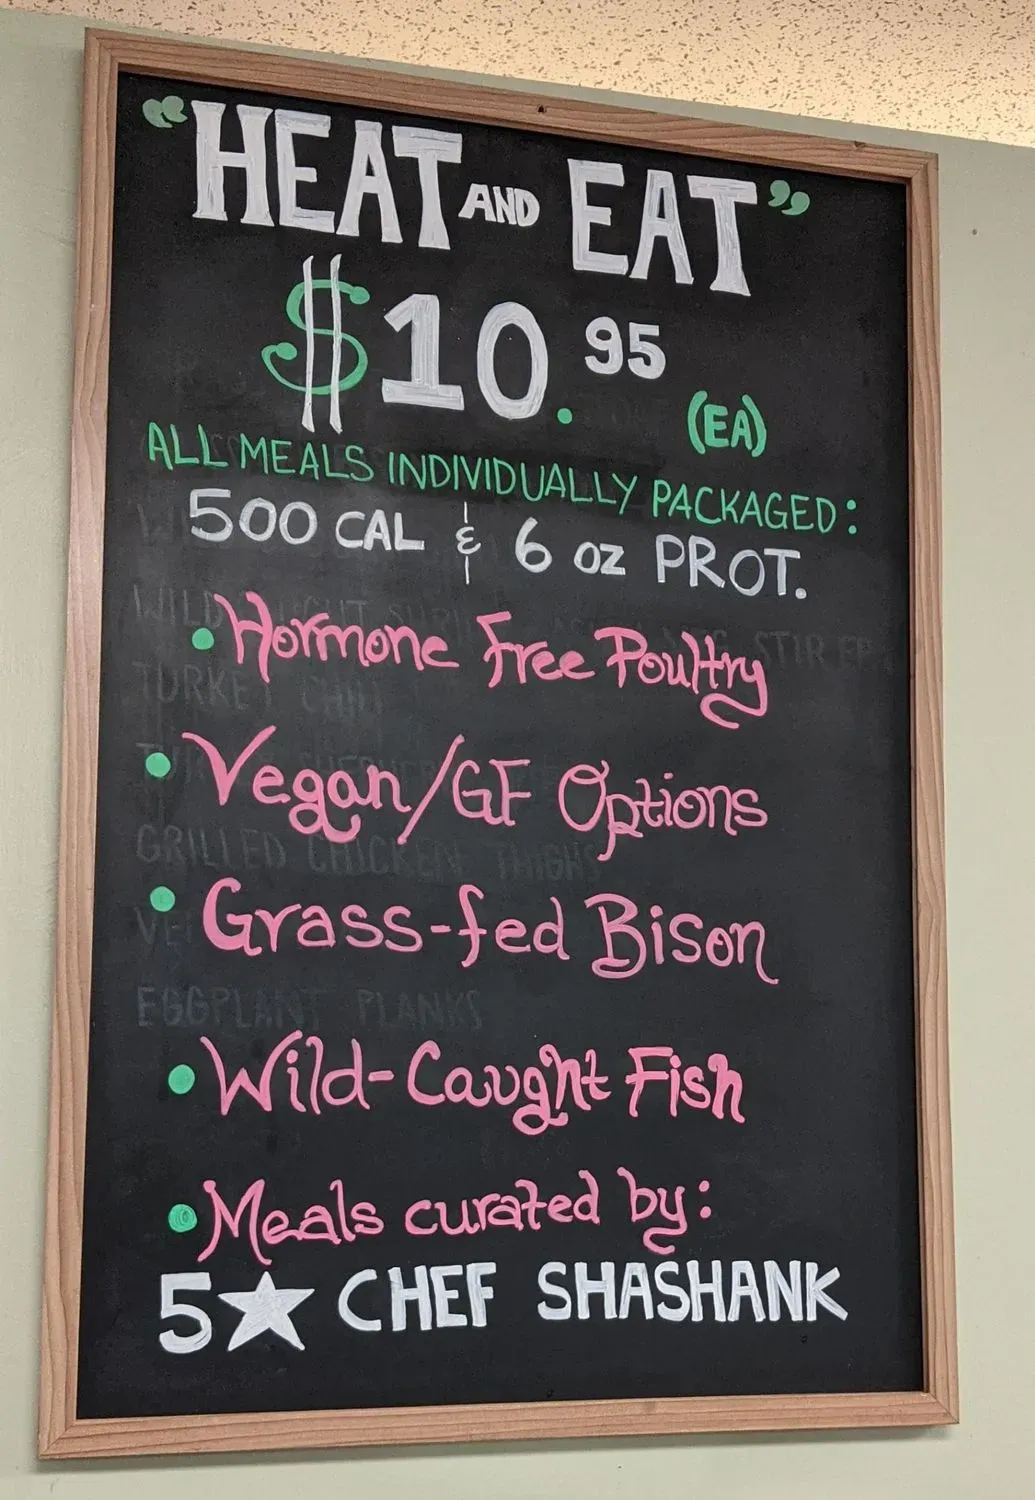 "HEAT AND EAT"
$10.95 (EA)
ALL MEALS INDIVIDUALLY PACKAGED:
500 CAL & 6 oz PROT.
• Hormone Free Poultry
TURKEY CHILI
• Vegan/GF Options
GRILLED CHICKEN THIGHS
• Grass-fed Bison
EGGPLANT PLANKS
• Wild-Caught Fish
• Meals curated by:
5★ CHEF SHASHANK